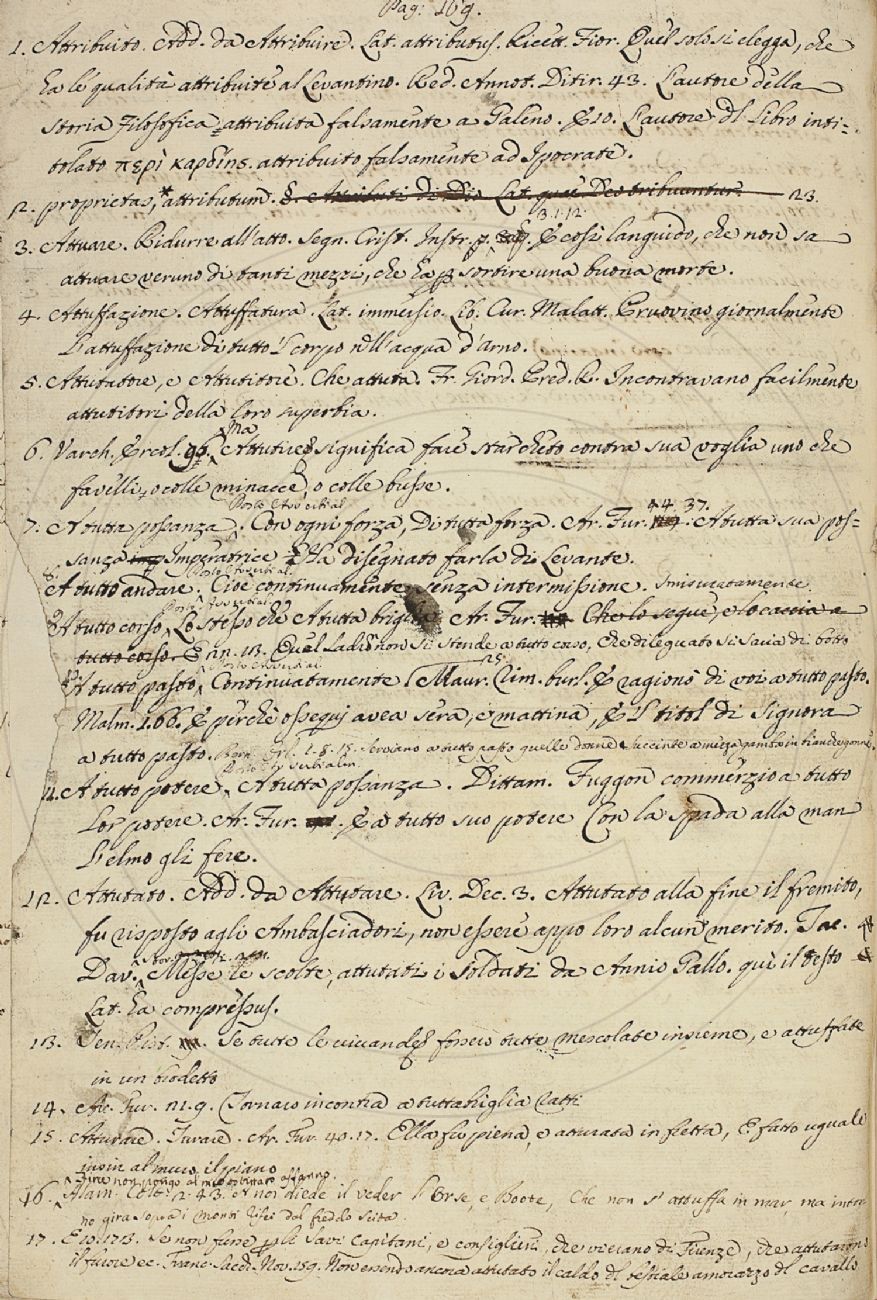 Pag. 169.
1. Attribuito. Add. da Attribuire. Lat. attributus. Ricett. Fior. Quel solo si elegga, che
ha le qualità attribuite al Levantino. Red. Annot. Ditir. 43. L'autore della
storia Filosofica attribuita falsamente a Galeno. E 10. L'autore dl Libro inti-
tolato περὶ καρδίης. attribuito falsamente ad Ipocrate.
2. proprietas, * attributum. §. Attributi di Dio Lat. quae Deo tribuuntur. 23.
3. 1. 12.
3. Attuare. Ridurre all'atto. Segn. Crist. Instr. E così languido, che non sa
attuare veruno di tanti mezzi, che ha p sortire una buona morte.
4. Attuffazione. Attuffatura. Lat. immersio. Lib. Cur. Malatt. Pruovino giornalmente
l'attuffazione di tutto 'l corpo nll'acqua d'Arno.
5. Attutatore, e Attutitore. Che attuta. Fr. Giord. Pred. R. Incontravano facilmente
attutitori della loro superbia.
ma
6. Varch. Ercol. 96. Attutire significa fare star cheto contra sua voglia uno che
favelli, o colle minacce, o colle busse.
Posto Avverbial.
7. A tutta possanza. Con ogni forza, Di tutta forza. Ar. Fur. 44. 37. A tutta sua pos-
sanza Imperatrice Ha disegnato farla di Levante.
Posto Avverbial.
8. A tutto andare. Cioè continuamente, senza intermissione. Smisuratamente
Posto Avverbial.
A tutto corso. Lo stesso che A tutta briglia. Ar. Fur. Che lo segue, e lo caccia a
tutto corso. E 11. 13. Quel Ladron non si stende a tutto corso, Che dileguato si saria di botto
Posto Avverbial.
A tutto pasto. Continuatamente. Maur. rim. burl. E ragionò di voi a tutto pasto.
Malm. 1. 66. E perchè ossequj avea sera, e mattina, E 'l titol di Signora
a tutto pasto. Bern. Orl. 1. 8. 15. Serviano a tutto pasto quelle donne Succinte a mezza gamba in bianche gonne.
Posto Avverbialm.
11. A tutto potere. A tutta possanza. Dittam. Fuggon commerzio a tutto
lor potere. Ar. Fur. E a tutto suo potere Con la spada alla man
l'elmo gli fere.
12. Attutato. Add. da Attutare. Liv. Dec. 3. Attutato alla fine il fremito,
fu risposto agli Ambasciadori, non essere appo loro alcun merito. Tac.
Dav. Messe le scolte, attutati i soldati da Annio Gallo. quì il testo
Lat. ha compressus.
13. Sen. Pist. Se tutte le vivande fossero tutte mescolate insieme, e attuffate
in un brodetto
14. Ar. Fur. 21. 9. Tornaro incontra a tutta briglia ratti
15. Atturare. Turare. Ar. Fur. 40. 17. Ella fu piena, e atturata in fretta, E fatto uguale
insin al muro il piano
16. Alam. Colt. 2. 43. A noi diede il veder l'Orse, e Boote, Che non s'attuffa in mar, ma intor-
no gira sopra i monti Rifei dal freddo Scita.
17. E 10. 173. Se non fusse p li savi Capitani, e consiglieri, che vi erano di Firenze, che attutarono
il furore ec. Franc. Sacch. Nov. 159. Non essendo ancora attutato il caldo dl bestiale amorazzo dl cavallo